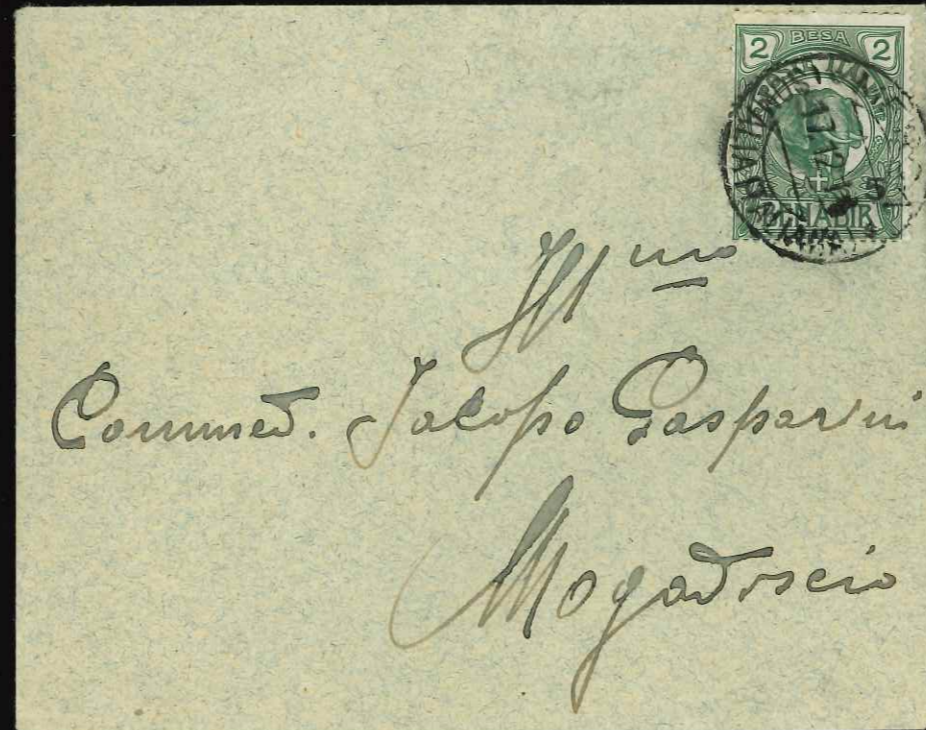 2 BESA 2
BENADIR
Ill mo
Commed. Jacopo Gasparini
Mogadiscio